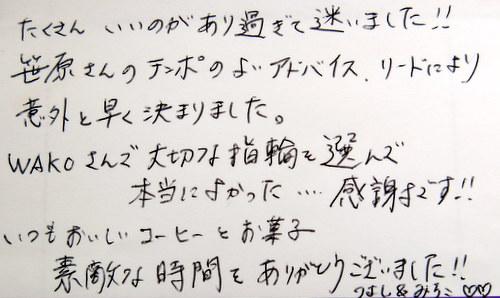 たくさん いいのがあり過ぎて迷いました!!
笹原さんのテンポのよいアドバイス、リードにより
意外と早く決まりました。
WAKOさんで大切な指輪を選んで
本当によかった…. 感謝です!!
いつもおいしいコーヒーとお菓子
素敵な時間をありがとうございました!!
つよし&みちこ♡♡